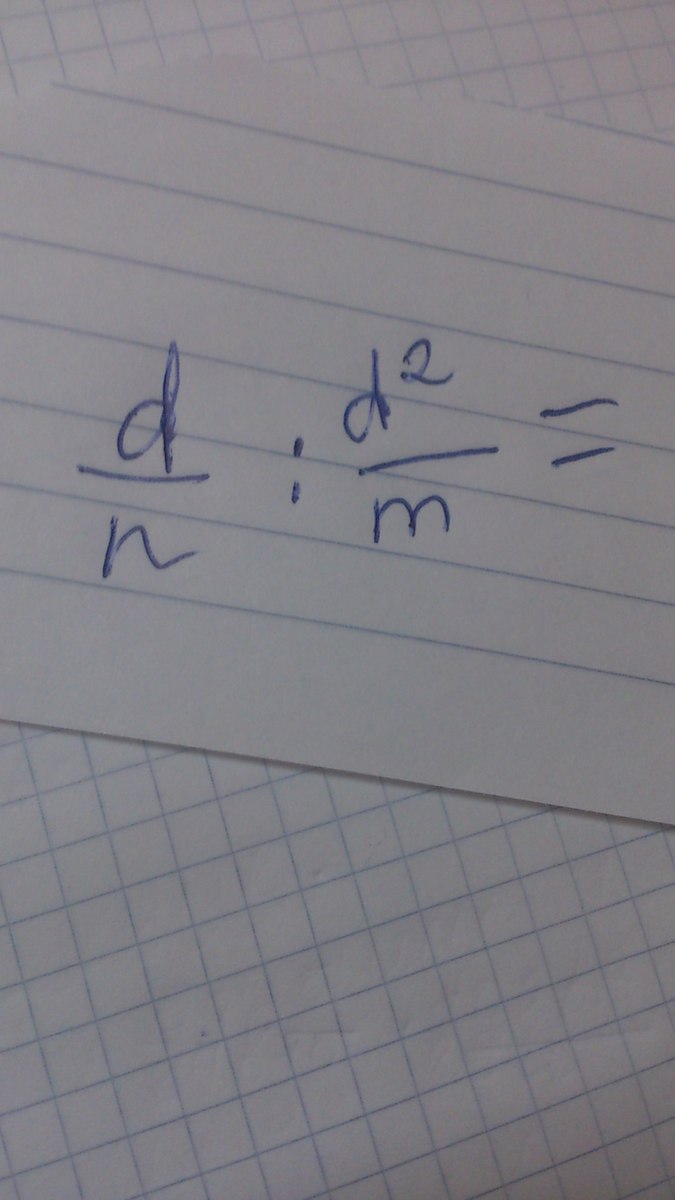 d/n : d²/m =